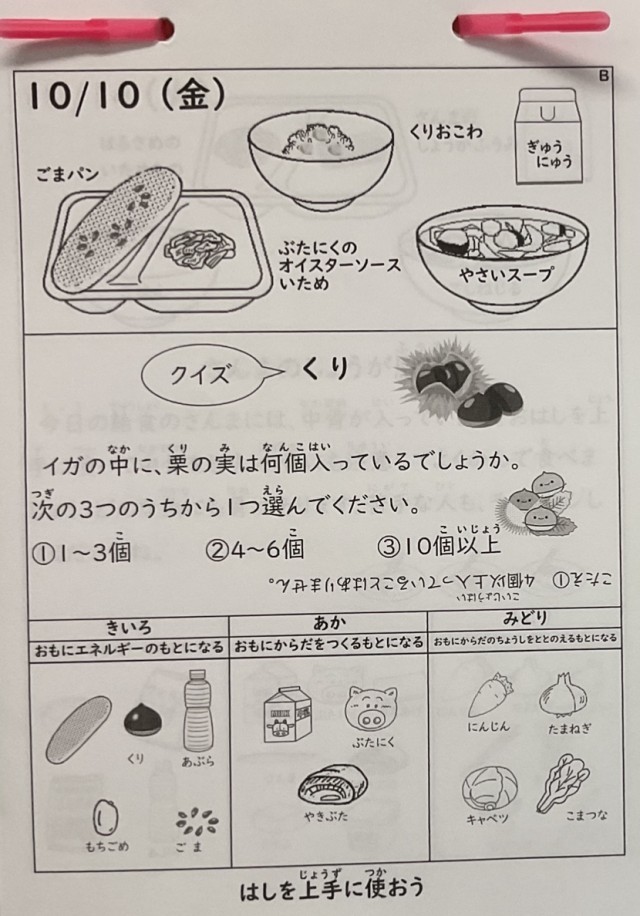 B
10/10（金）
くりおこわ
ぎゅう
にゅう
ごまパン
ぶたにくの
オイスターソース
いため
やさいスープ
クイズ
くり
イガの中に、栗の実は何個入っているでしょうか。
次の3つのうちから1つ選んでください。
①1～3個 ②4～6個 ③10個以上
こたえ① 4個以上入っていることはありません。
きいろ
おもにエネルギーのもとになる
あか
おもにからだをつくるもとになる
みどり
おもにからだのちょうしをととのえるもとになる
くり
あぶら
もちごめ
ごま
MILK
ぶたにく
やきぶた
にんじん
たまねぎ
キャベツ
こまつな
はしを上手に使おう